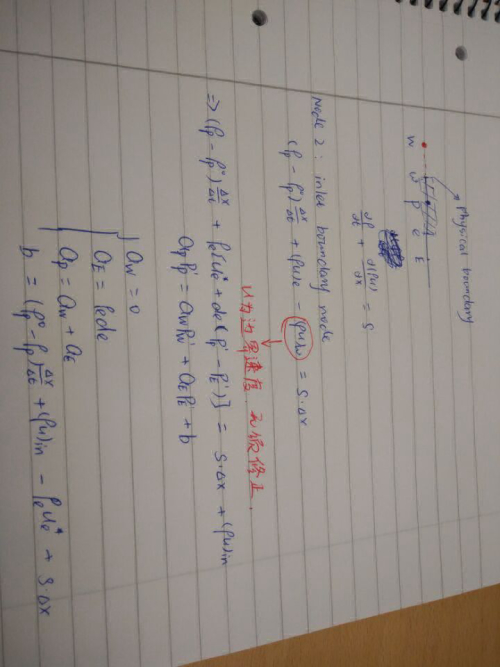 Physical boundary
W w P e E
∂ρ/∂t + ∂(ρu)/∂x = S
Node 2 : inlet boundary node
(ρ_P - ρ_P°) Δx/Δt + (ρu)_e - (ρu)_w = S·Δx
U为边界速度 不做修正.
⇒ (ρ_P - ρ_P°) Δx/Δt + ρ_e[u_e* + d_e(P_P' - P_E')] = S·Δx + (ρu)_in
a_P P_P' = a_W P_W' + a_E P_E' + b
a_W = 0
a_E = ρ_e d_e
a_P = a_W + a_E
b = (ρ_P° - ρ_P) Δx/Δt + (ρu)_in - ρ_e u_e* + S·Δx